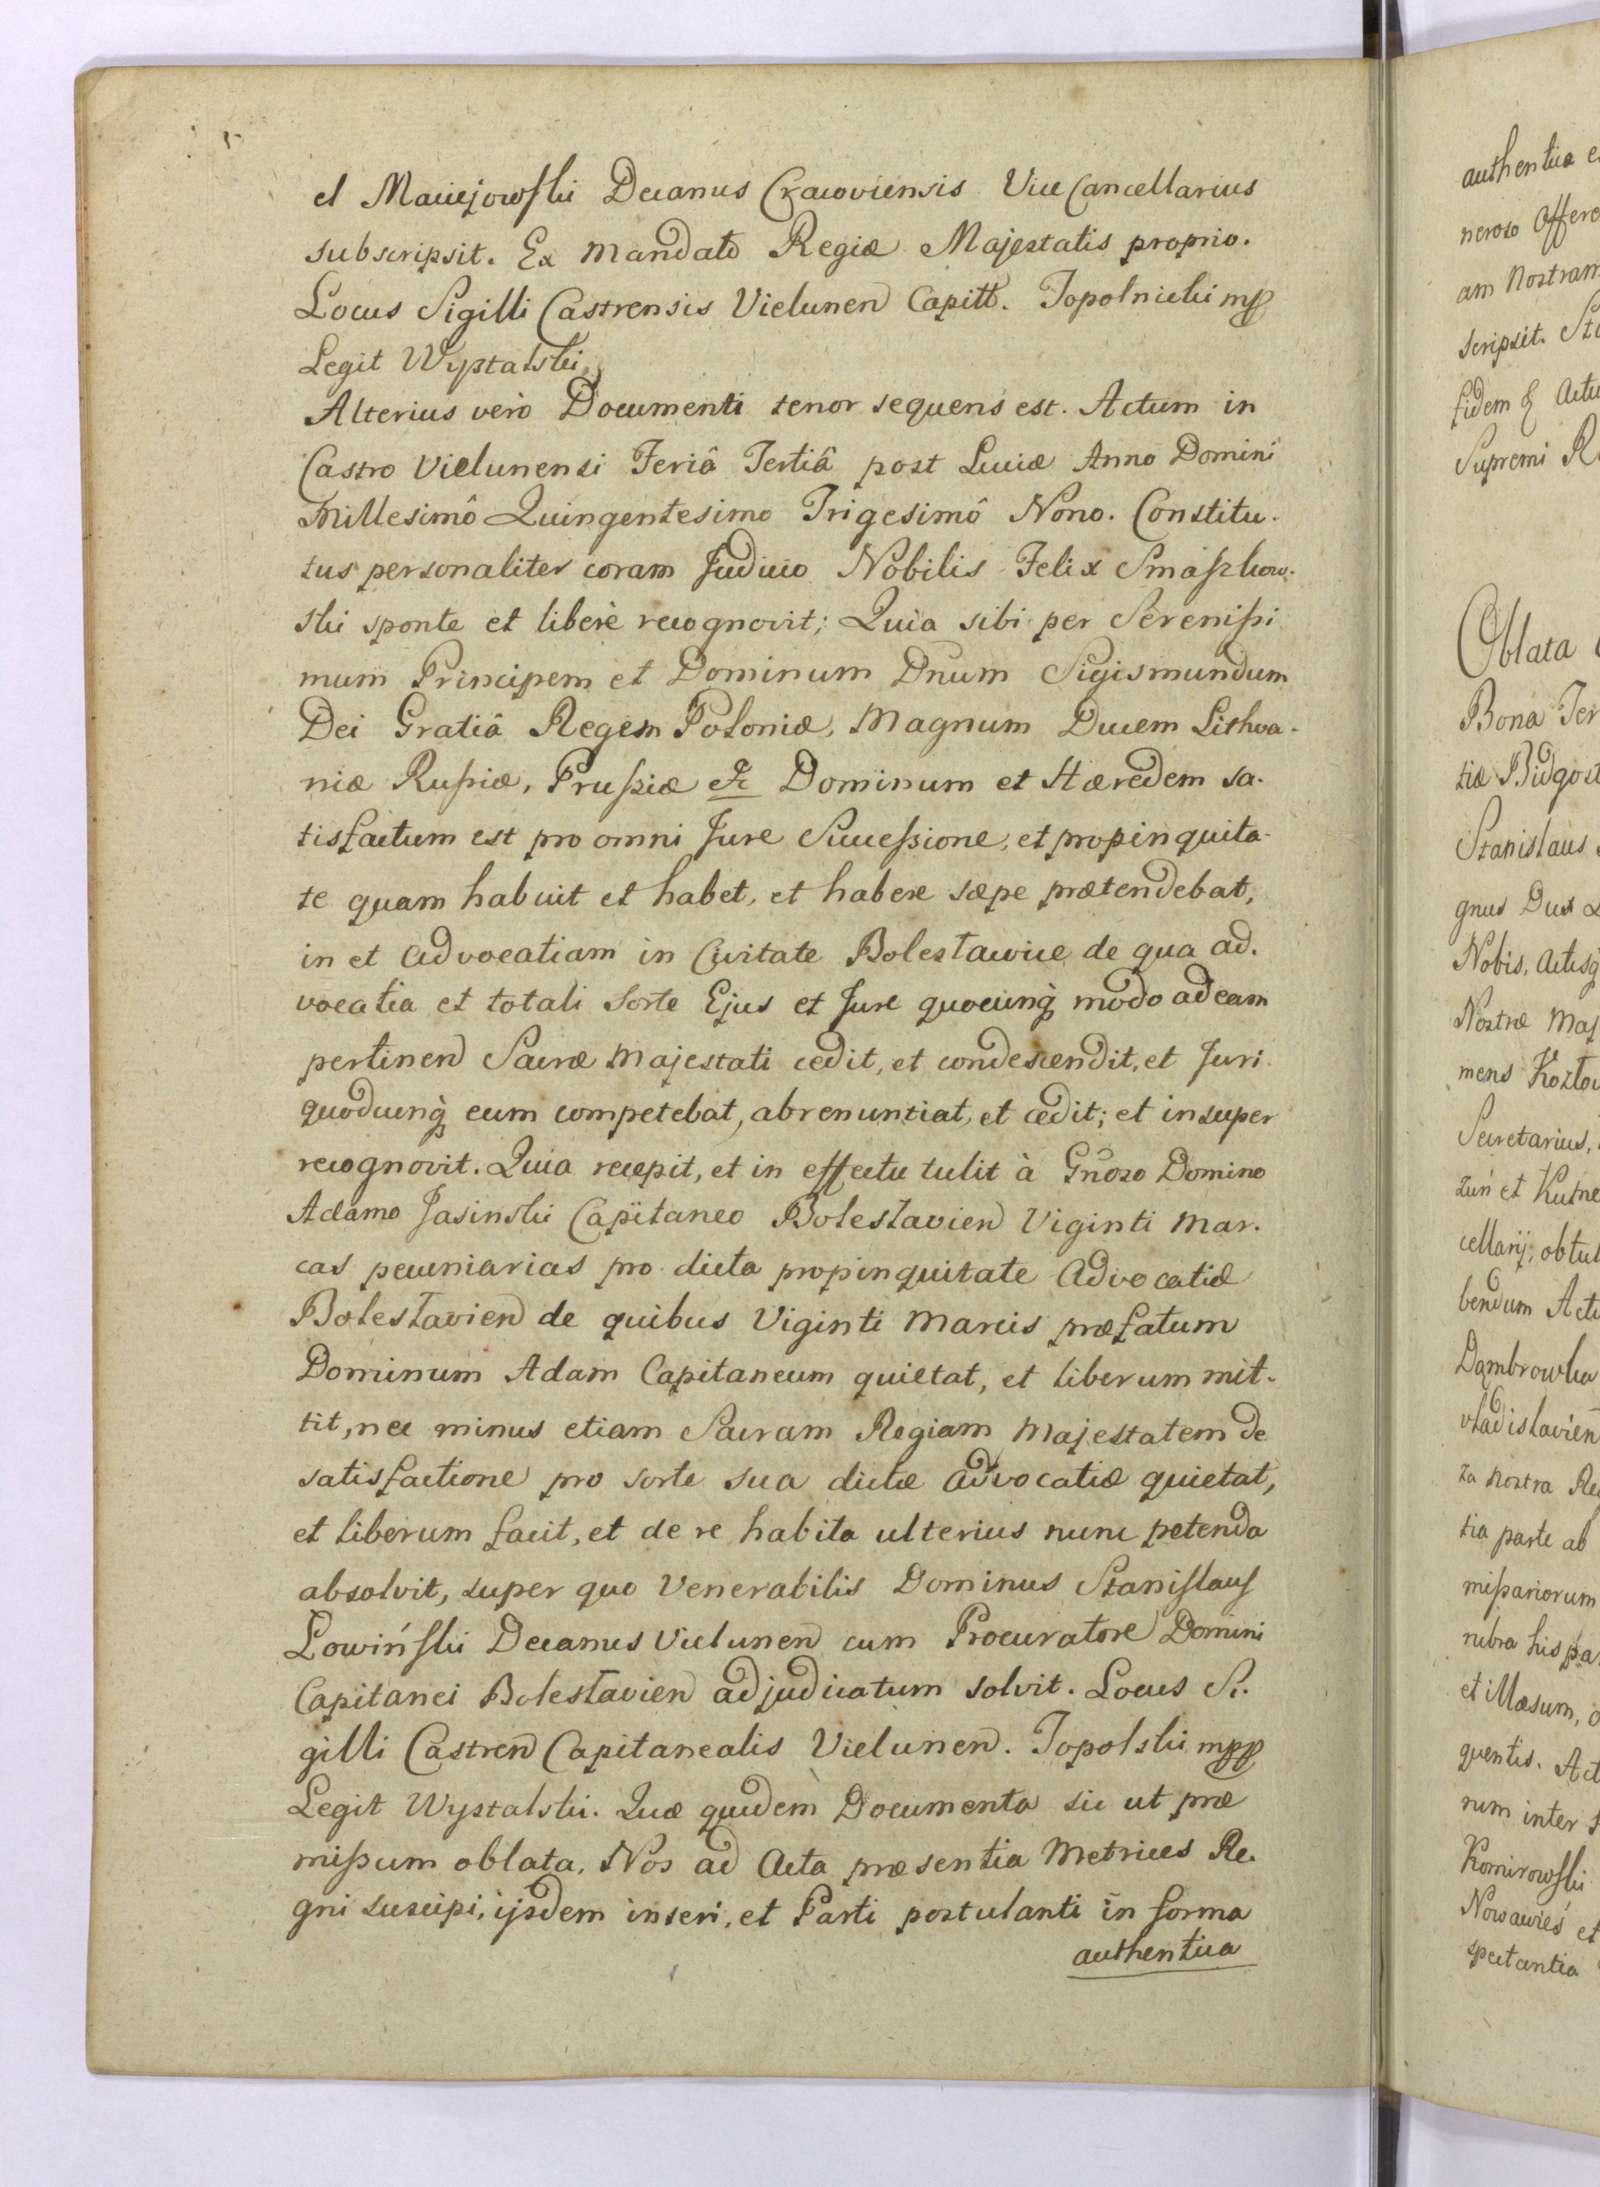 el Maciejowski Decanus Cracoviensis Vice Cancellarius
subscripsit. Ex Mandato Regiæ Majestatis proprio.
Locus Sigilli Castrensis Vielunen Capitt. Topolnicki mp
Legit Wystalski
Alterius verò Documenti tenor sequens est. Actum in
Castro Vielunensi Feriâ Tertiâ post Luciæ Anno Domini
Millesimô Quingentesimo Trigesimô Nono. Constitu-
tus personaliter coram Judicio Nobilis Felix Smaszkow-
ski sponte et liberè recognovit; Quia sibi per Serenissi
mum Principem et Dominum Dnum Sigismundum
Dei Gratiâ Regem Poloniæ, Magnum Ducem Lithva-
niæ Russiæ, Prussiæ &c Dominum et Hæredem sa-
tisfactum est pro omni Jure Successione, et propinquita-
te quam habuit et habet, et habere sæpe prætendebat,
in et advocatiam in Civitate Bolesławice de qua ad-
vocatia et totali Sorte Ejus et Jure quocunq modo ad eam
pertinen Sacræ Majestati cedit, et condescendit, et Juri
quodcunq eum competebat, abrenuntiat, et cedit; et insuper
recognovit. Quia recepit, et in effectu tulit à Gnoso Domino
Adamo Jasinski Capitaneo Bolesłavien Viginti Mar-
cas pecuniarias pro dicta propinquitate Advocatiæ
Bolesłavien de quibus Viginti Marcis præfatum
Dominum Adam Capitaneum quietat, et liberum mit-
tit, nec minus etiam Sacram Regiam Majestatem de
satisfactione pro sorte sua dictæ advocatiæ quietat,
et liberum facit, et de re habita ulterius nunc petenda
absolvit, super quo Venerabilis Dominus Stanislaus
Lowiński Decanus Vielunen cum Procuratore Domini
Capitanei Bolesłavien adjudicatum solvit. Locus Si-
gilli Castren Capitanealis Vielunen. Topolski mpp
Legit Wystalski. Quæ quidem Documenta sic ut præ
missum oblata, Nos ad Acta præsentia Metrices Re-
gni suscipi, ijsdem inseri, et Parti postulanti in forma
authentica
authentica
neroso Offere
am Nostram
scripsit.
fidem & Actu
Supremi R
Oblata
Bona Ter
tiæ Bidgost
Stanislaus
gnus Dux
Nobis, Actisq
Nostræ Maj
mens Kozłow
Secretarius,
zun et Kutne
cellarij, obtul
bendum Acti
Dąmbrowka
vladislavien
za nostra Re
tia parte ab
missariorum
nibra his pa
et illæsum,
quentis. Act
rum inter
Komirowski
Nowawieś et
spectantia